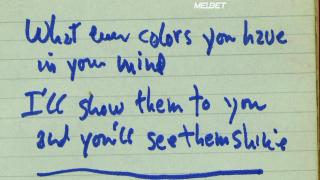 MELBET
What ever colors you have
in your mind
I'll show them to you
and you'll see them shine